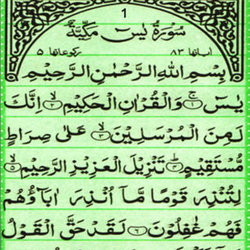 1
سُوْرَةُ يٰسٓ مَكِّيَّةٌ
اٰیاتها ٨٣
رکوعاتها ٥
بِسْمِ اللّٰهِ الرَّحْمٰنِ الرَّحِيْمِ
يٰسٓ ۝١ وَالْقُرْاٰنِ الْحَكِيْمِ ۝٢ اِنَّكَ
لَمِنَ الْمُرْسَلِيْنَ ۝٣ عَلٰى صِرَاطٍ
مُّسْتَقِيْمٍ ۝٤ تَنْزِيْلَ الْعَزِيْزِ الرَّحِيْمِ ۝٥
لِتُنْذِرَ قَوْمًا مَّآ اُنْذِرَ اٰبَآؤُهُمْ
فَهُمْ غٰفِلُوْنَ ۝٦ لَقَدْ حَقَّ الْقَوْلُ